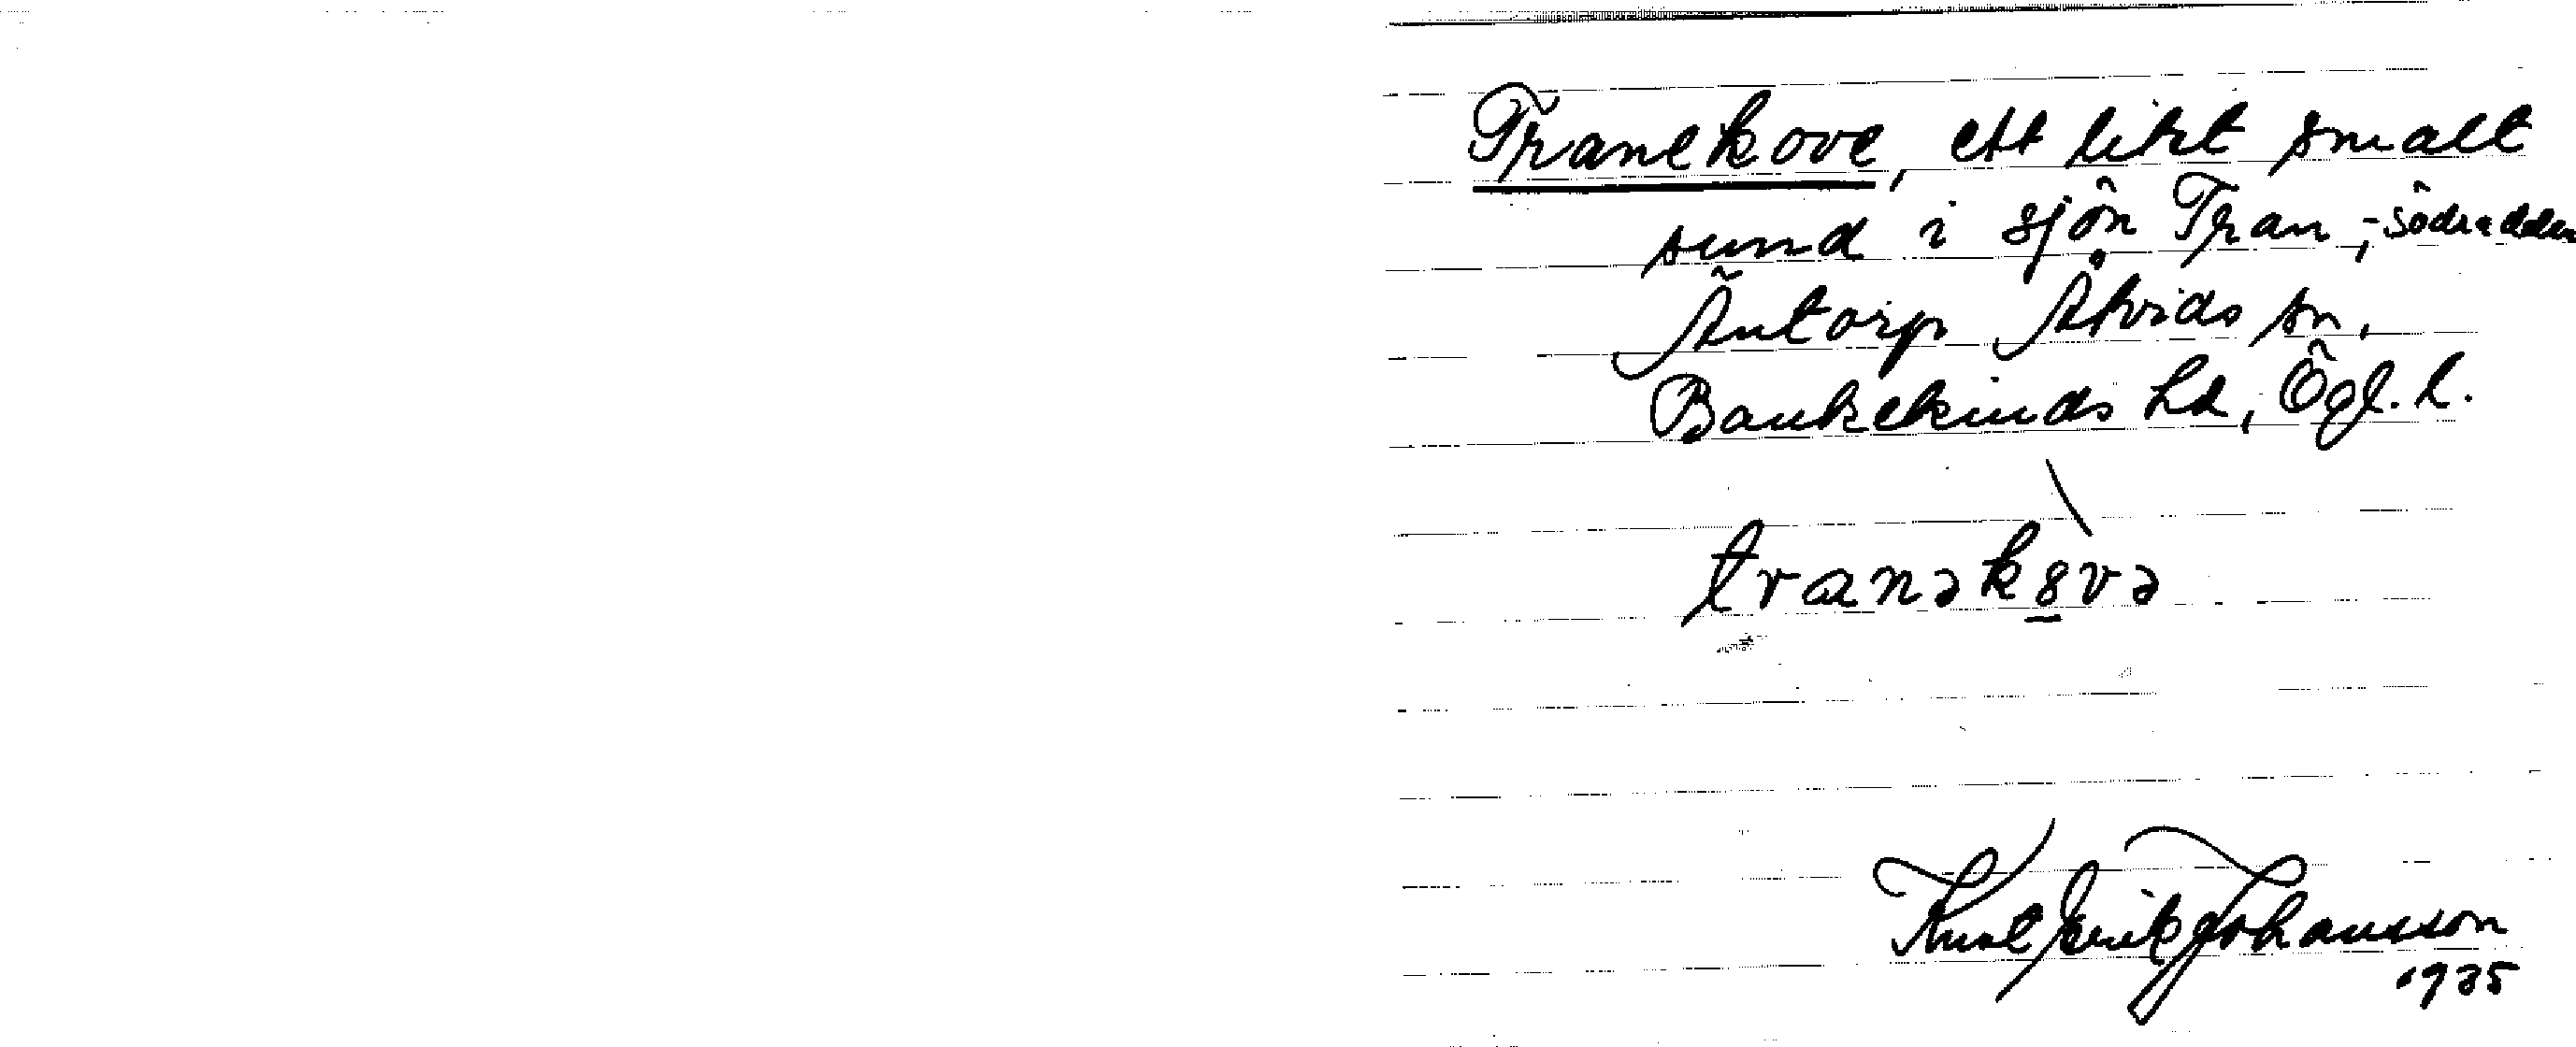 Tranekove, ett litet smalt
sund i sjön Tran, - södra delen
Äntorp Åtvids sn,
Bankekinds hd, Ögl. l.
tranəkȣvə
Knut Erik Johansson
1935